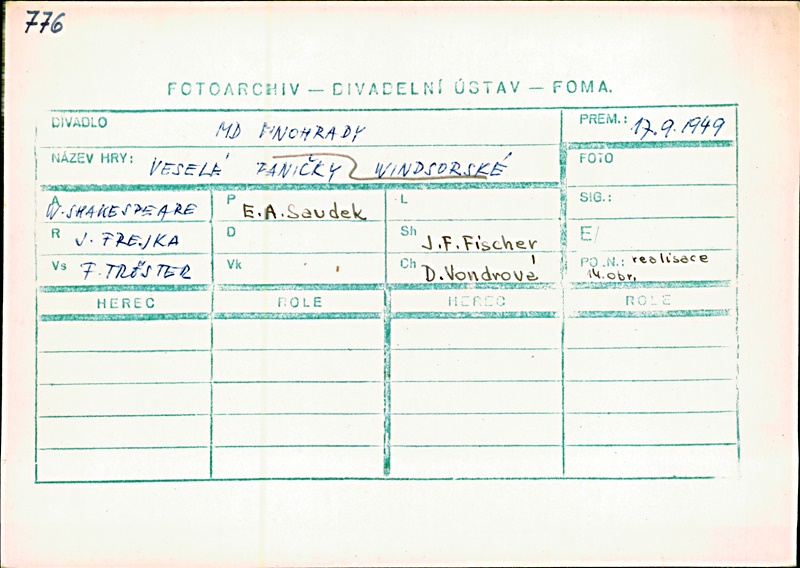 776
FOTOARCHIV — DIVADELNÍ ÚSTAV — FOMA.
DIVADLO MD VINOHRADY PREM.: 17.9.1949
NÁZEV HRY: VESELÉ PANIČKY WINDSORSKÉ FOTO
A W. SHAKESPEARE P E.A. Saudek L SIG.:
R J. FREJKA D Sh J.F. Fischer E/
Vs F. TRÖSTER Vk Ch D. Vondrová POZN.: realisace
14. obr.
HEREC ROLE HEREC ROLE